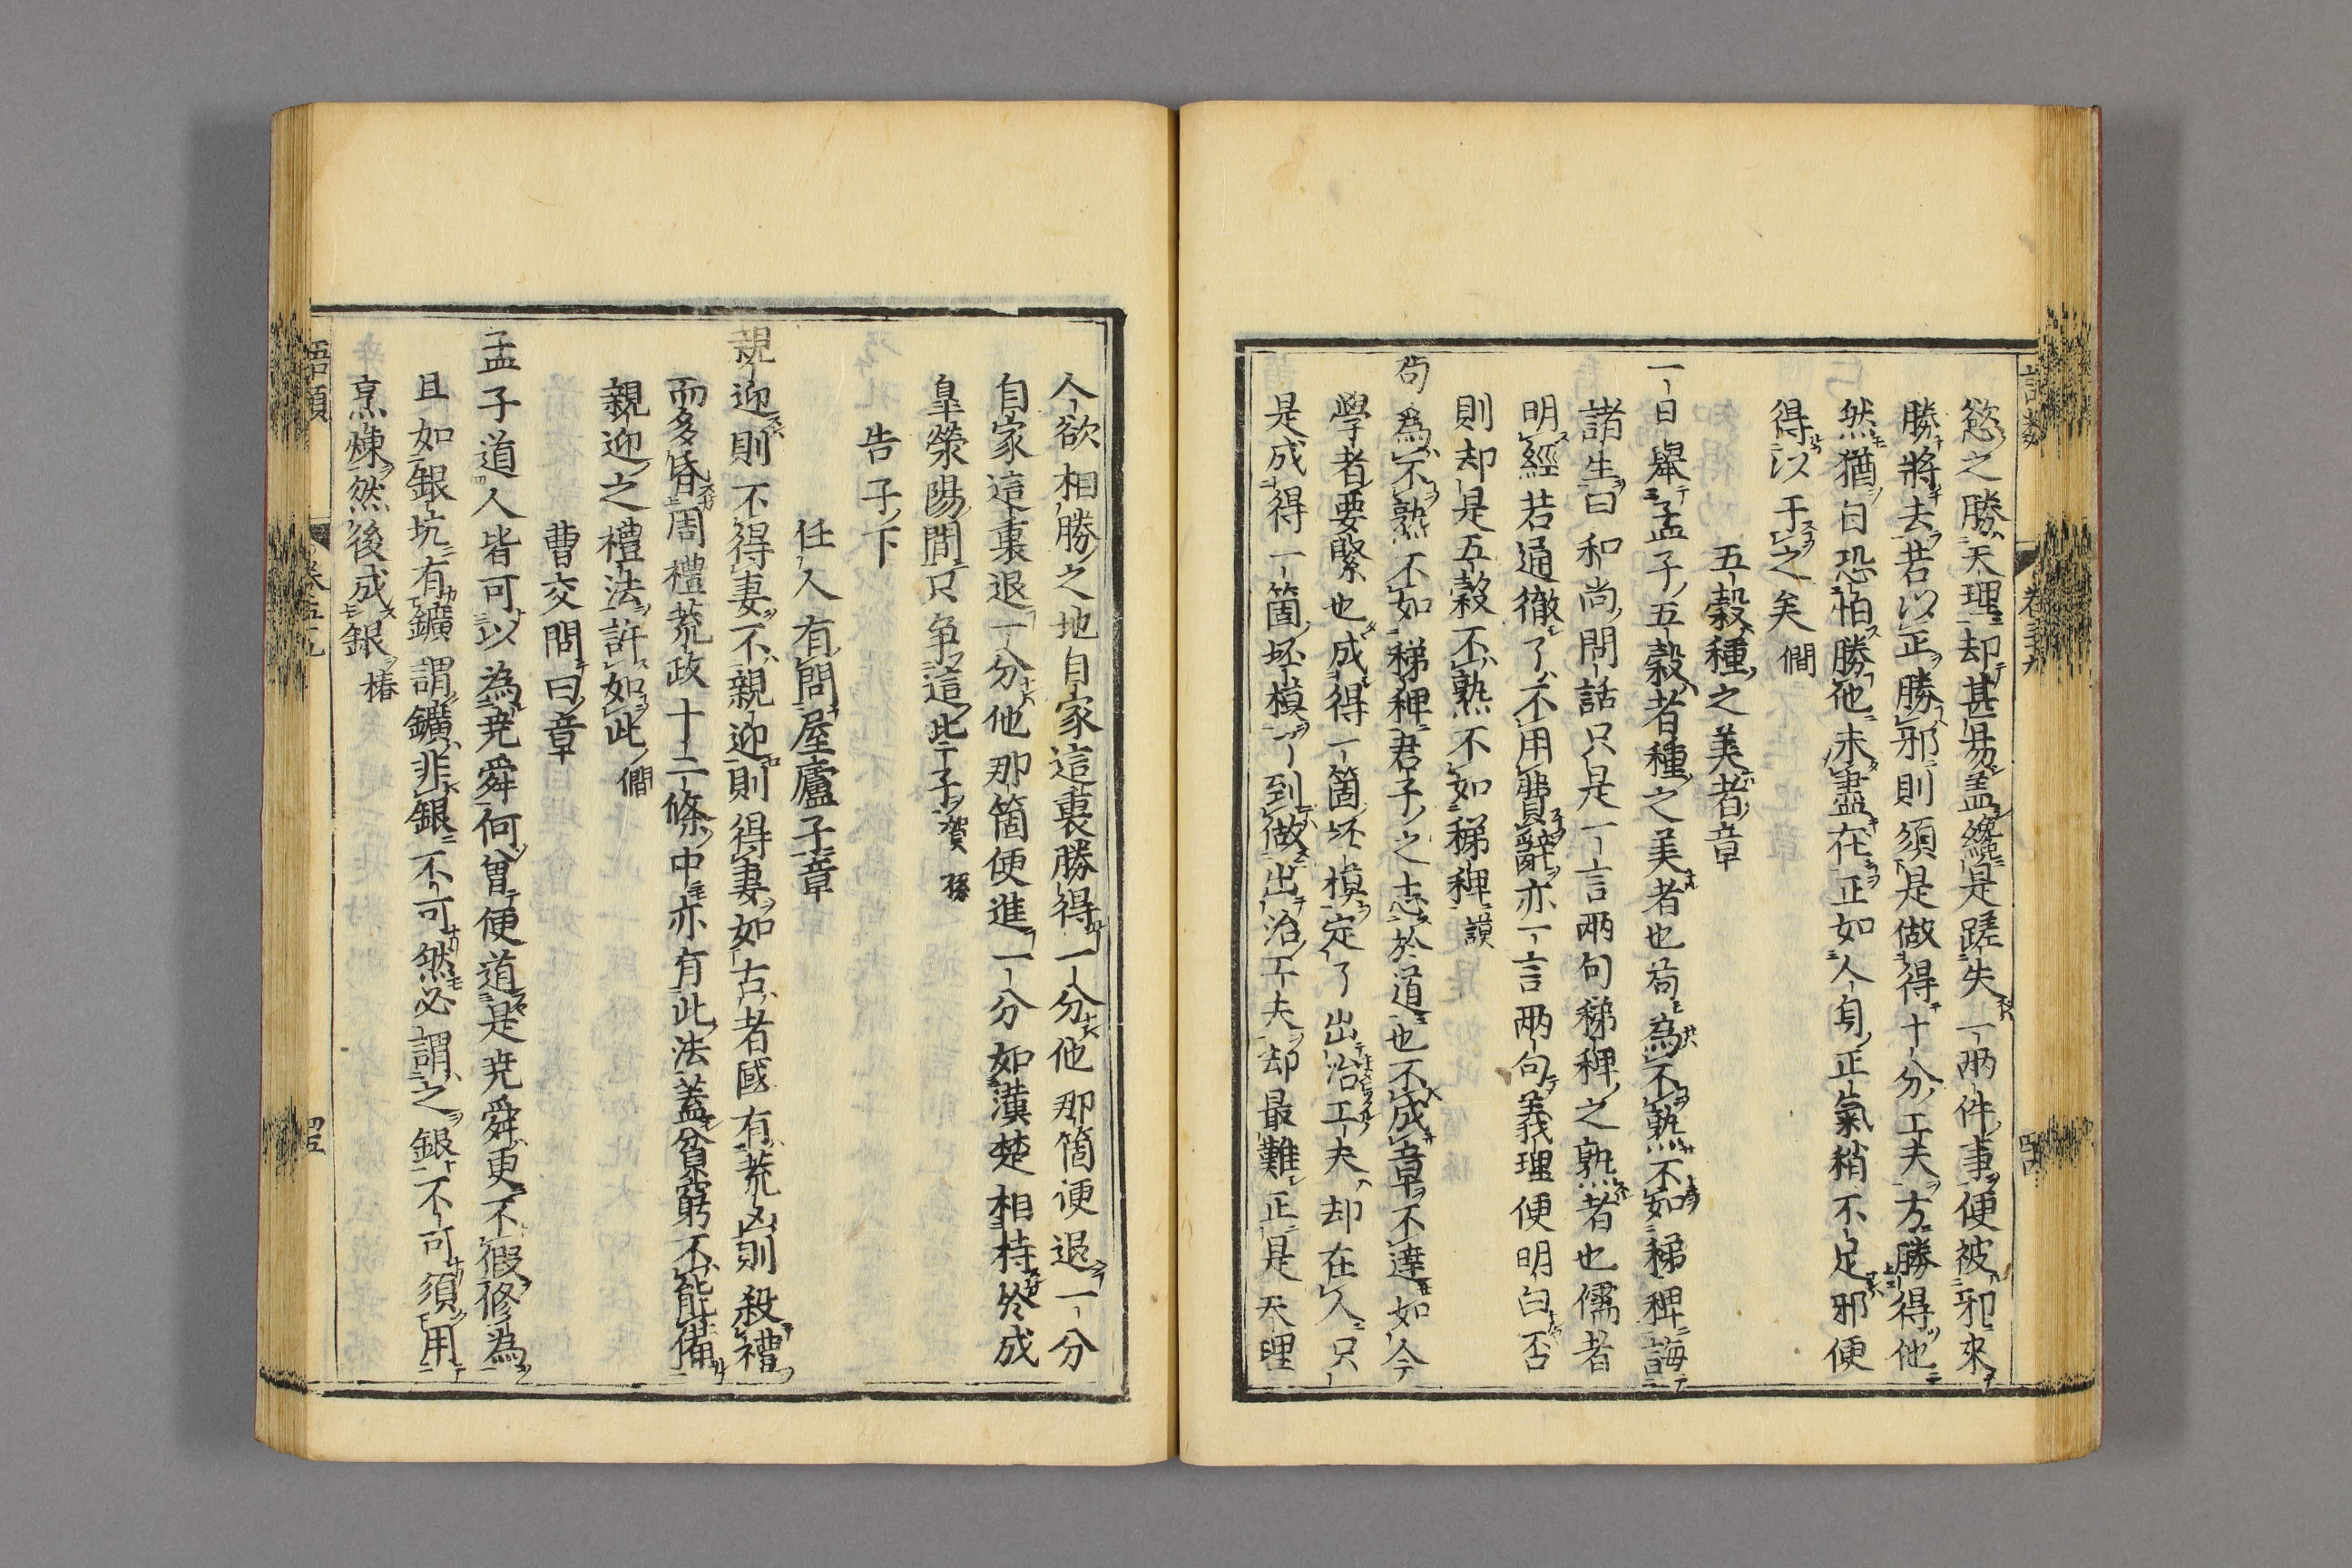 慾之勝天理却甚易盖纔是蹉失一兩件事便被邪來
勝將去若以正勝邪則須是做得十分工夫方勝得他
然猶自恐怕勝他未盡在正如人身正氣稍不足邪便
得以干之矣 僩
五穀種之美者章
一日舉孟子五穀者種之美者也苟為不熟不如稊稗誨
諸生曰和尚問話只是一言兩句稊稗之熟者也儒者
明經若通徹了不用費辭亦一言兩句義理便明白否
則却是五穀不熟不如稊稗 謨
苟為不熟不如稊稗君子之志於道也不成章不達如今
學者要緊也成得一箇坯模定了出治工夫却在人只
是成得一箇坯模了到做出治工夫却最難正是天理
人欲相勝之地自家這裏勝得一分他那箇便退一分
自家這裏退一分他那箇便進一分如漢楚相持於成
皐滎陽間只争這些子 賀孫
告子下
任人有問屋廬子章
親迎則不得妻不親迎則得妻如古者國有荒凶則殺禮
而多昏周禮荒政十二條中亦有此法蓋貧窮不能備
親迎之禮法許如此 僩
曹交問曰章
孟子道人皆可以為堯舜何曾便道是堯舜更不假修為
且如銀坑有鑛謂鑛非銀不可然必謂之銀不可須用
烹煉然後成銀 椿
語類
卷五十九